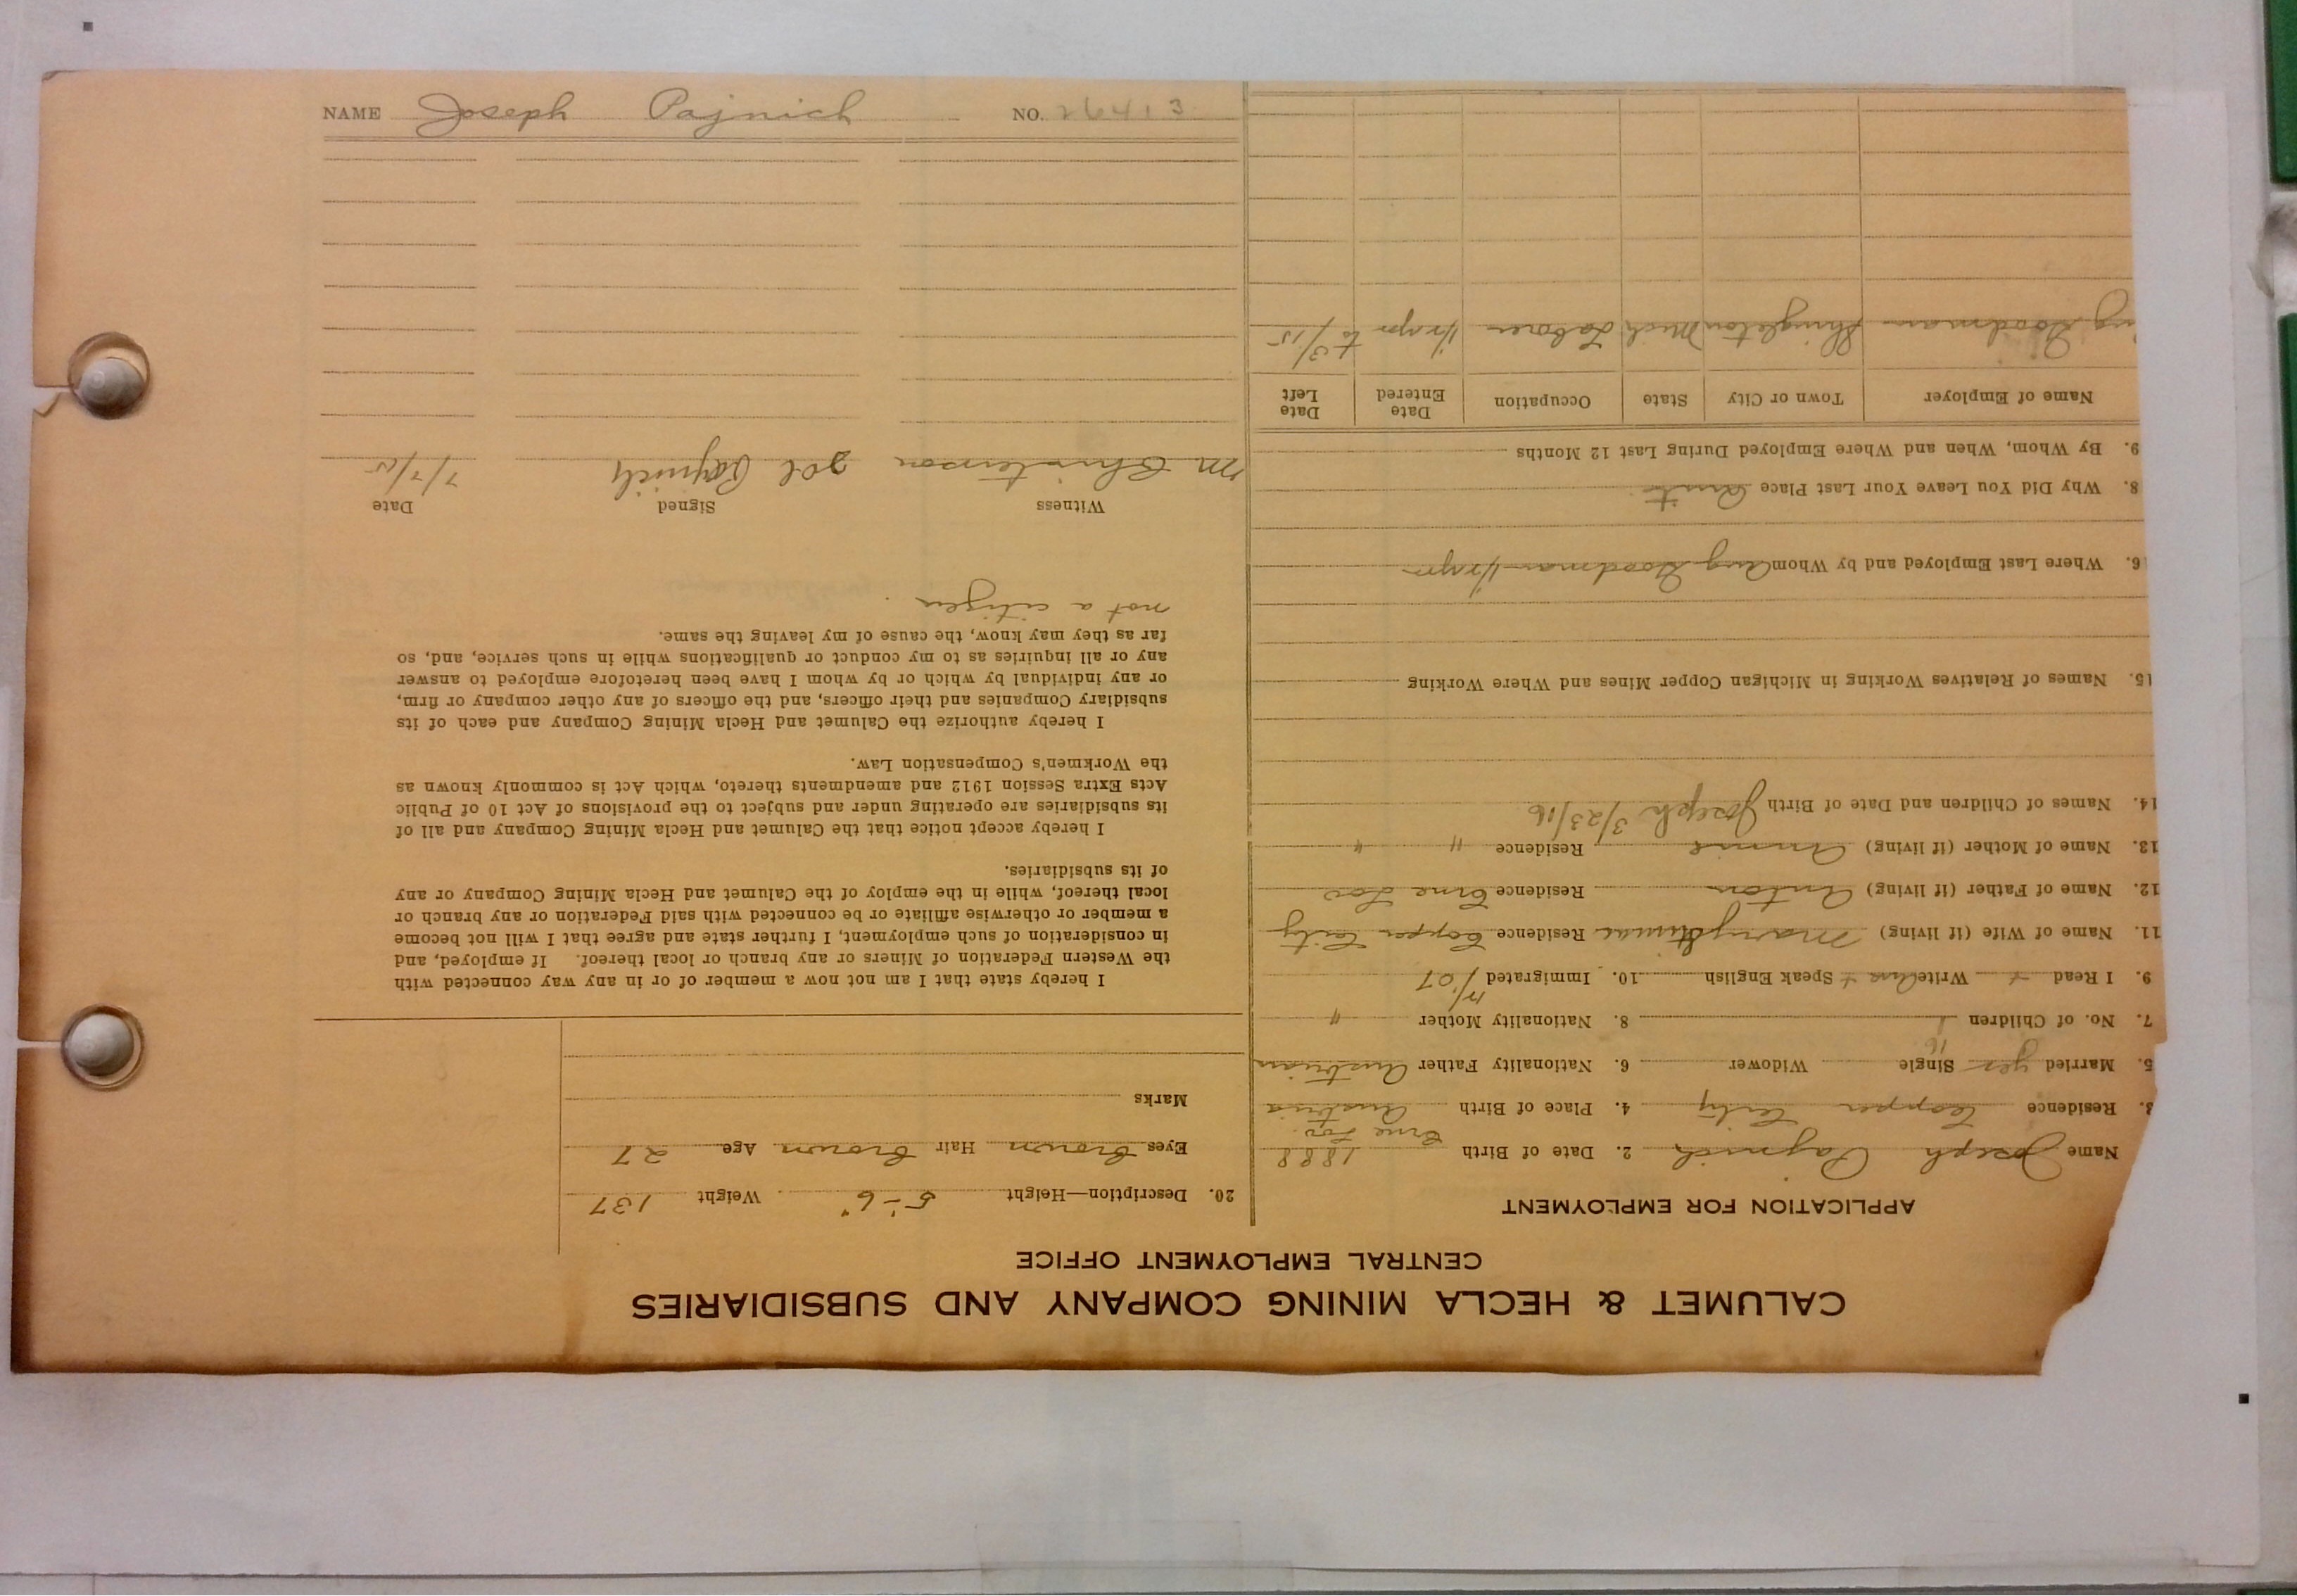 NAME Joseph Pajnich NO. 26413
CALUMET & HECLA MINING COMPANY AND SUBSIDIARIES
CENTRAL EMPLOYMENT OFFICE
APPLICATION FOR EMPLOYMENT
Name Joseph Pajnich 2. Date of Birth 1888
3. Residence Copper City 4. Place of Birth Austria
5. Married yes Single Widower 6. Nationality Father Austrian
7. No. of Children 1 8. Nationality Mother "
9. I Read Write Speak English 10. Immigrated /07
11. Name of Wife (if living) Mary Residence Copper City
12. Name of Father (if living) Anton Residence
13. Name of Mother (if living) Annie Residence " "
14. Names of Children and Date of Birth Joseph 3/23/16
15. Names of Relatives Working in Michigan Copper Mines and Where Working
6. Where Last Employed and by Whom Aug Goodman 1/2 yr
8. Why Did You Leave Your Last Place Quit
9. By Whom, When and Where Employed During Last 12 Months
Name of Employer Town or City State Occupation Date Entered Date Left
ug Goodman Shingleton Mich Laborer 1/2 yr to 3/15
20. Description—Height 5'-6" Weight 137
Eyes Brown Hair Brown Age 27
Marks
I hereby state that I am not now a member of or in any way connected with
the Western Federation of Miners or any branch or local thereof. If employed, and
in consideration of such employment, I further state and agree that I will not become
a member or otherwise affiliate or be connected with said Federation or any branch or
local thereof, while in the employ of the Calumet and Hecla Mining Company or any
of its subsidiaries.
I hereby accept notice that the Calumet and Hecla Mining Company and all of
its subsidiaries are operating under and subject to the provisions of Act 10 of Public
Acts Extra Session 1912 and amendments thereto, which Act is commonly known as
the Workmen's Compensation Law.
I hereby authorize the Calumet and Hecla Mining Company and each of its
subsidiary Companies and their officers, and the officers of any other company or firm,
or any individual by which or by whom I have been heretofore employed to answer
any or all inquiries as to my conduct or qualifications while in such service, and, so
far as they may know, the cause of my leaving the same.
not a citizen
Witness Signed Date
M Christenson Pajnich 7/7/15